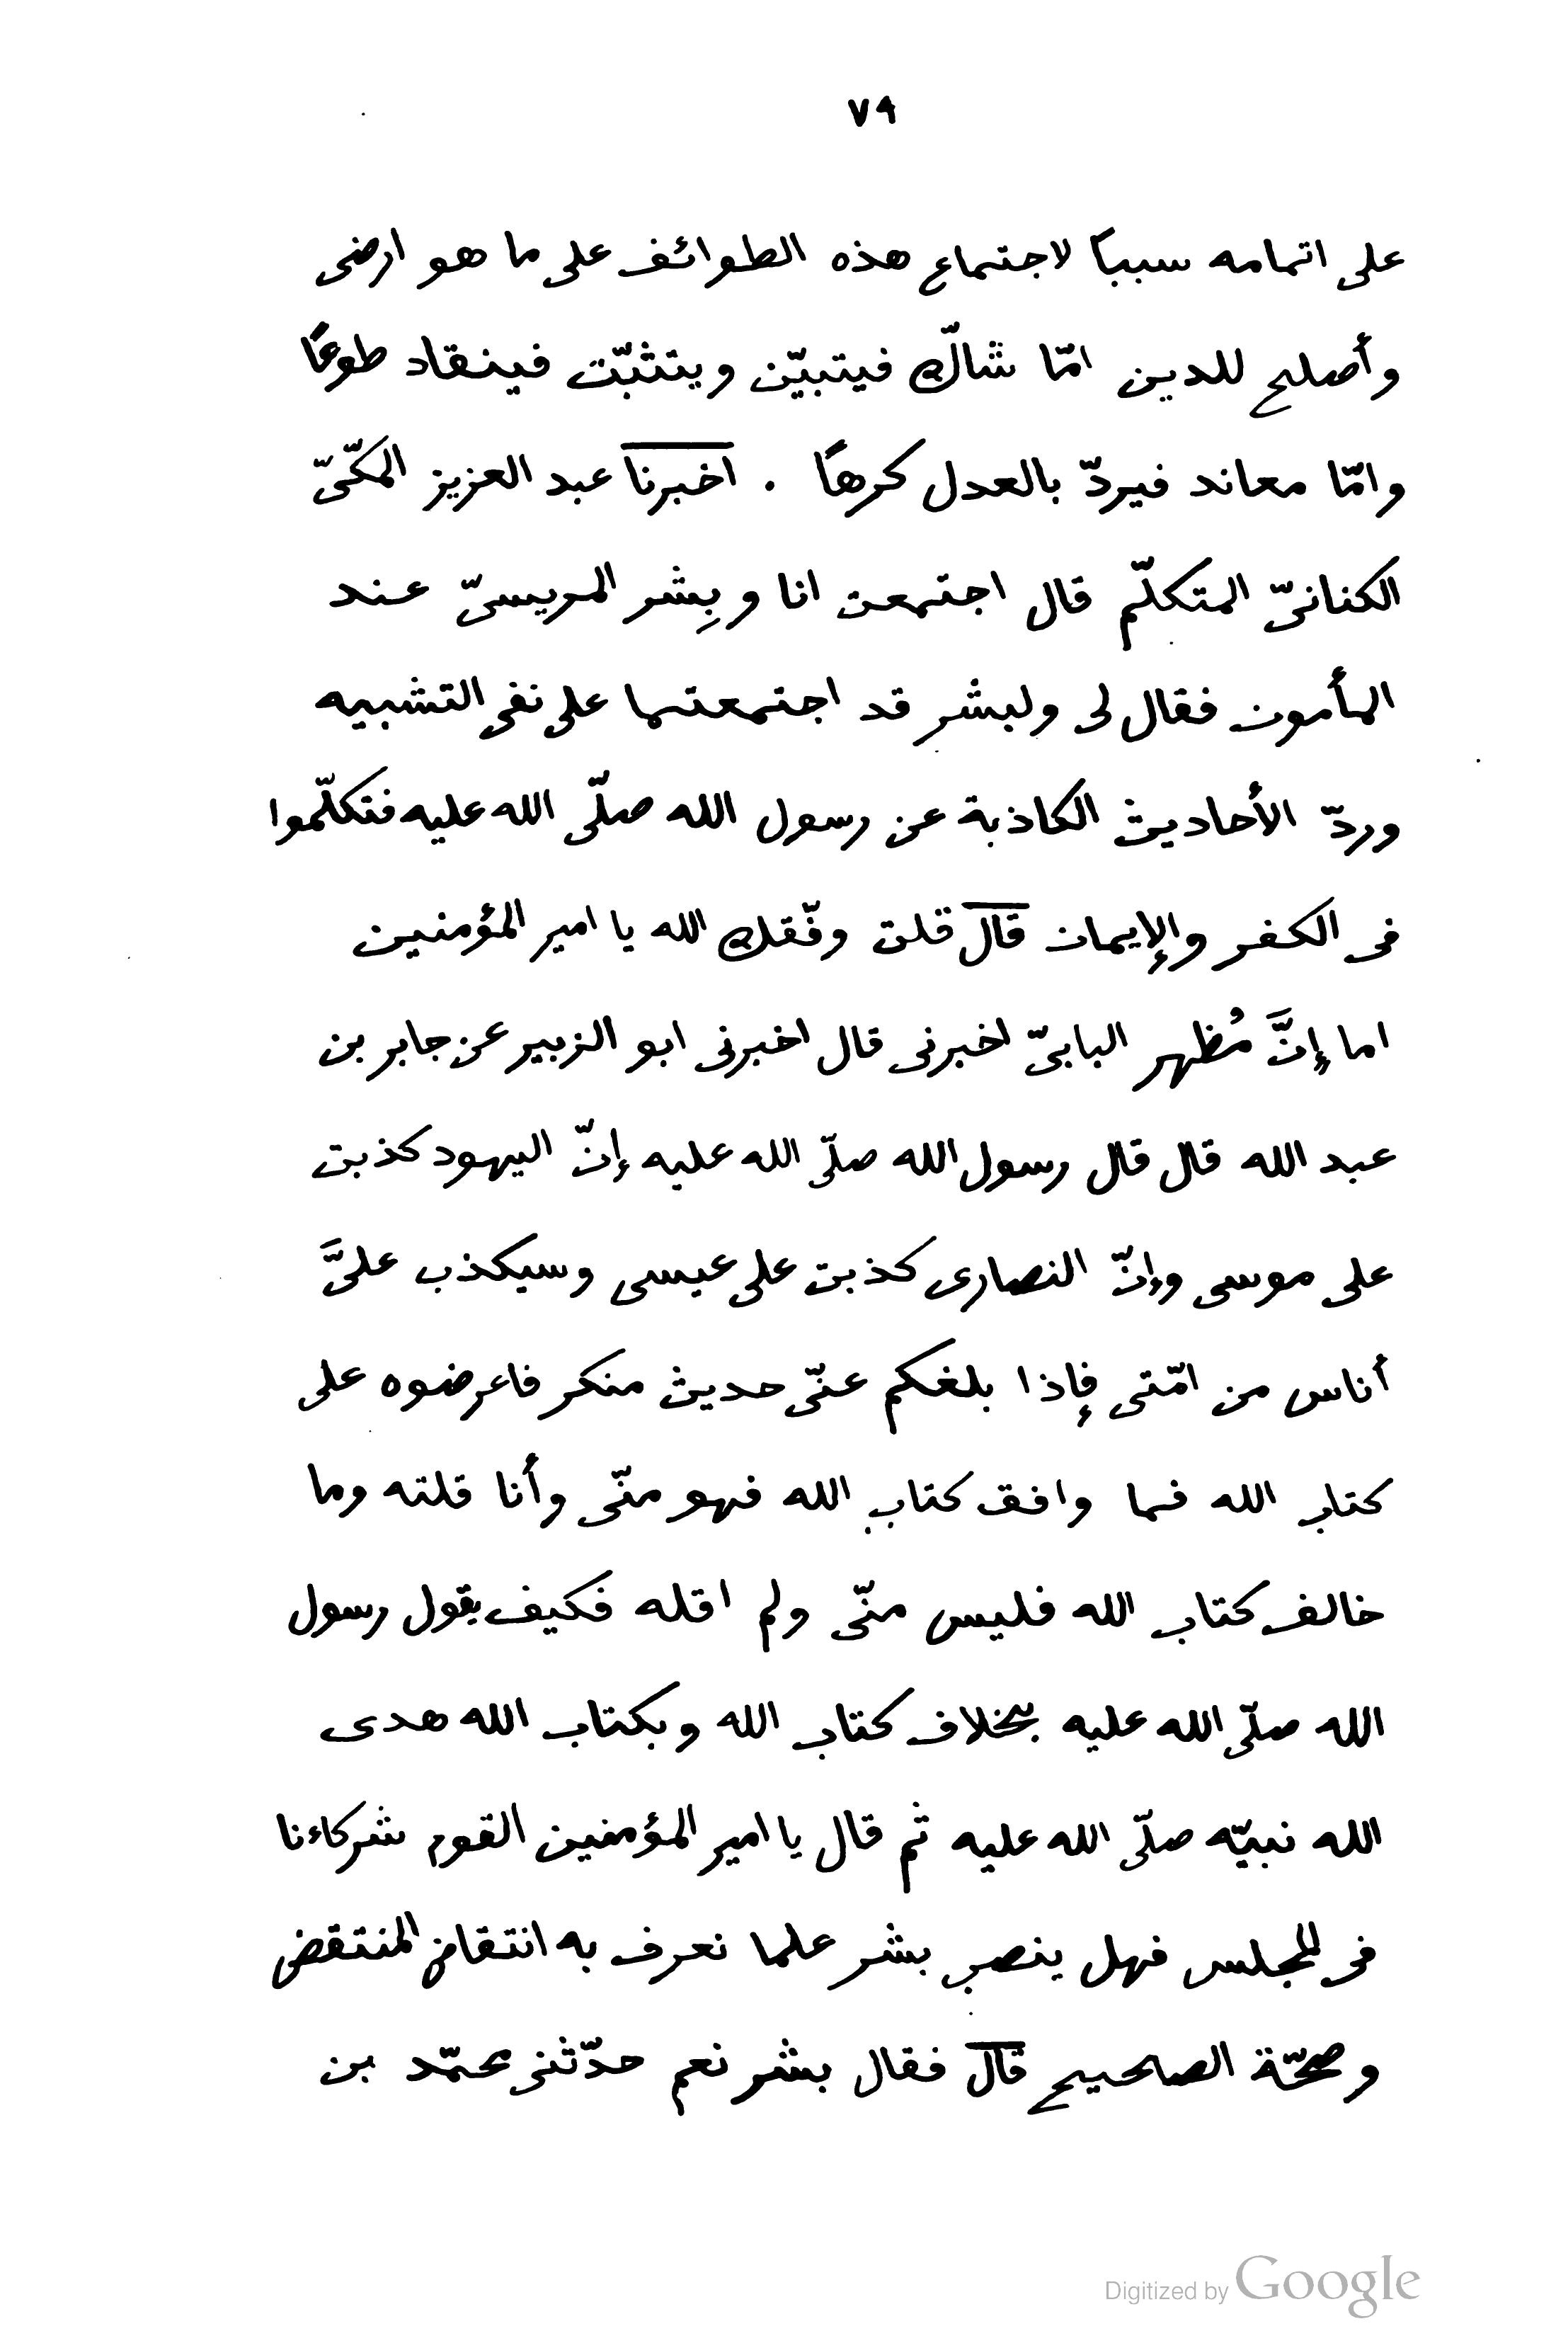 ٧٩
على اتمامه سببًا لاجتماع هذه الطوائف على ما هو ارضى
وأصلح للدين امّا شاكّ فيتبيّن ويتثبّت فينقاد طوعًا
وامّا معاند فيردّ بالعدل كرهًا . اخبرنا عبد العزيز المكّىّ
الكنانىّ المتكلّم قال اجتمعت انا وبِشر المريسىّ عند
المأمون فقال لى ولبشر قد اجتمعتما على نفى التشبيه
وردّ الأحاديث الكاذبة عن رسول الله صلّى الله عليه فتكلّموا
فى الكفر والإيمان قال قلت وفّقك الله يا امير المؤمنين
اما إنَّ مُظهر البابىّ اخبرنى قال اخبرنى ابو الزبير عن جابر بن
عبد الله قال قال رسول الله صلّى الله عليه إنّ اليهود كذبت
على موسى وإنّ النصارى كذبت على عيسى وسيكذب علىَّ
أناس من امّتى فإذا بلغكم عنّى حديث منكر فاعرضوه على
كتاب الله فما وافق كتاب الله فهو منّى وأنا قلته وما
خالف كتاب الله فليس منّى ولم اقله فكيف بقول رسول
الله صلّى الله عليه بخلاف كتاب الله وبكتاب الله هدى
الله نبيّه صلّى الله عليه ثم قال يا امير المؤمنين القوم شركاءنا
فى المجلس فهل ينصب بشر علما نعرف به انتقاض المنتقض
وصحّة الصحيح قال فقال بشر نعم حدّثنى محمّد بن
Digitized by Google